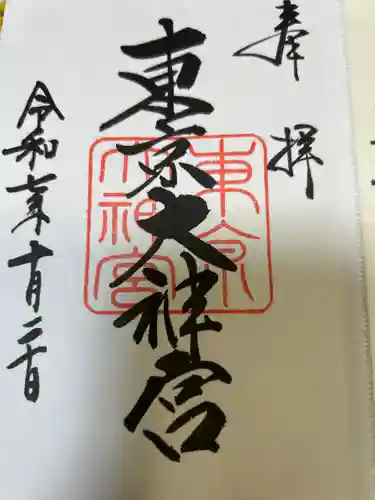 奉拝
東京大神宮
東京大神宮
令和七年十月二十日